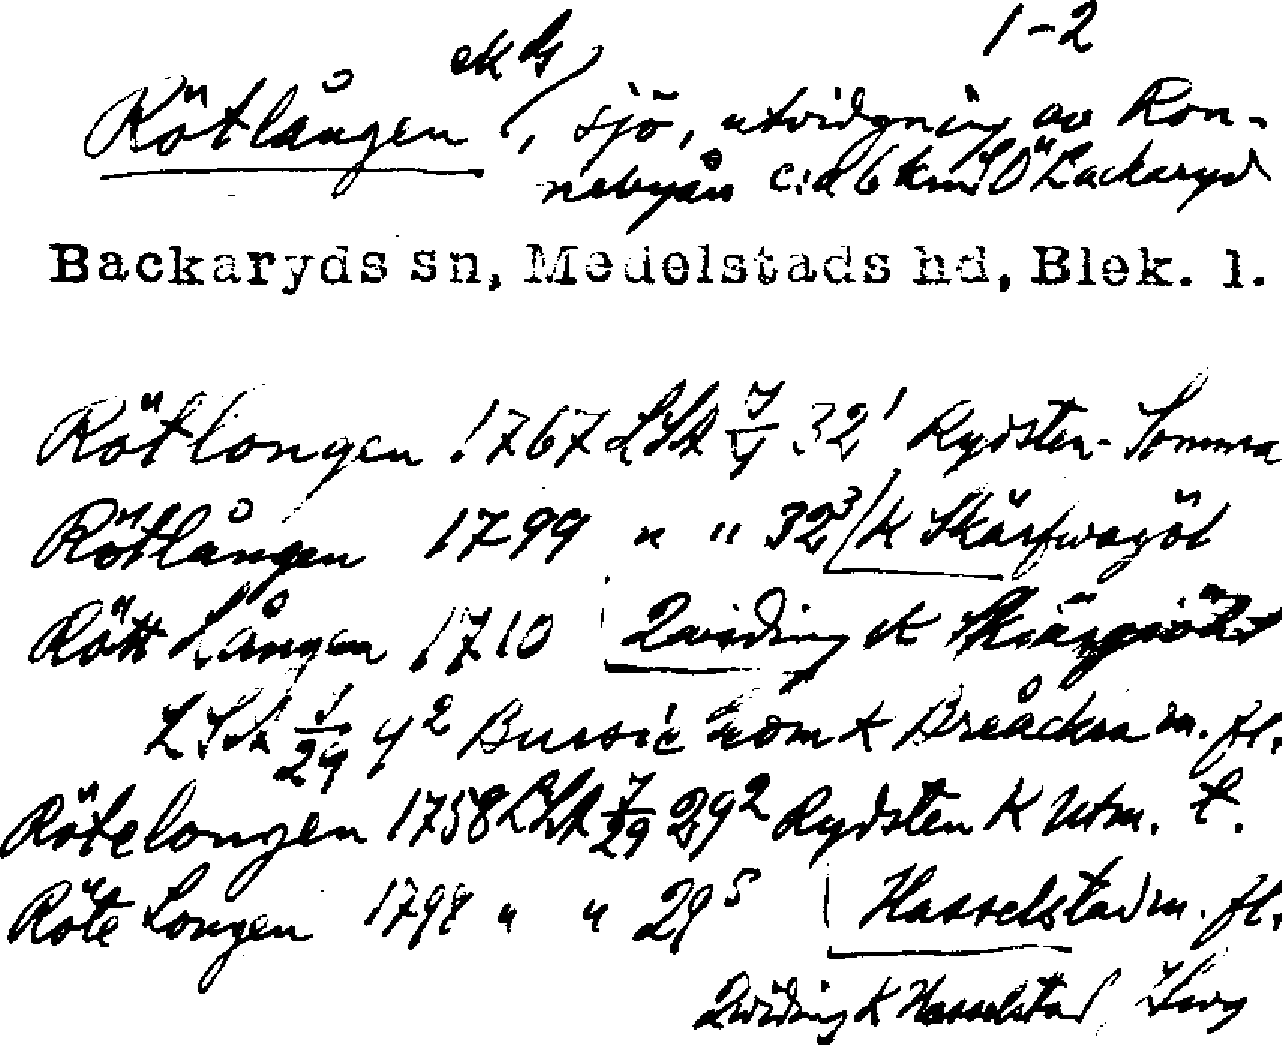 1-2
ek bl
Rötlången, sjö, utvidgning av Ron-
nebyån c:a 6 km SO Backaryd
Backaryds sn, Medelstads hd, Blek. l.
Rötlongen 1767 LSA 7/4 32¹ Rydsten Somma
Rötlången 1799 " " 32³ / K Skärfwagöl
Rött Lången 1710 Qwiding K
LSA 1/29 4² K Breåckra m. fl.
Rötelongen 1758 LSA 7/29 29² Rydsten K Utm. t.
Röte Longen 1798 " " 29⁵ Hasselstad m. fl.
Qwiding K Hasselstad